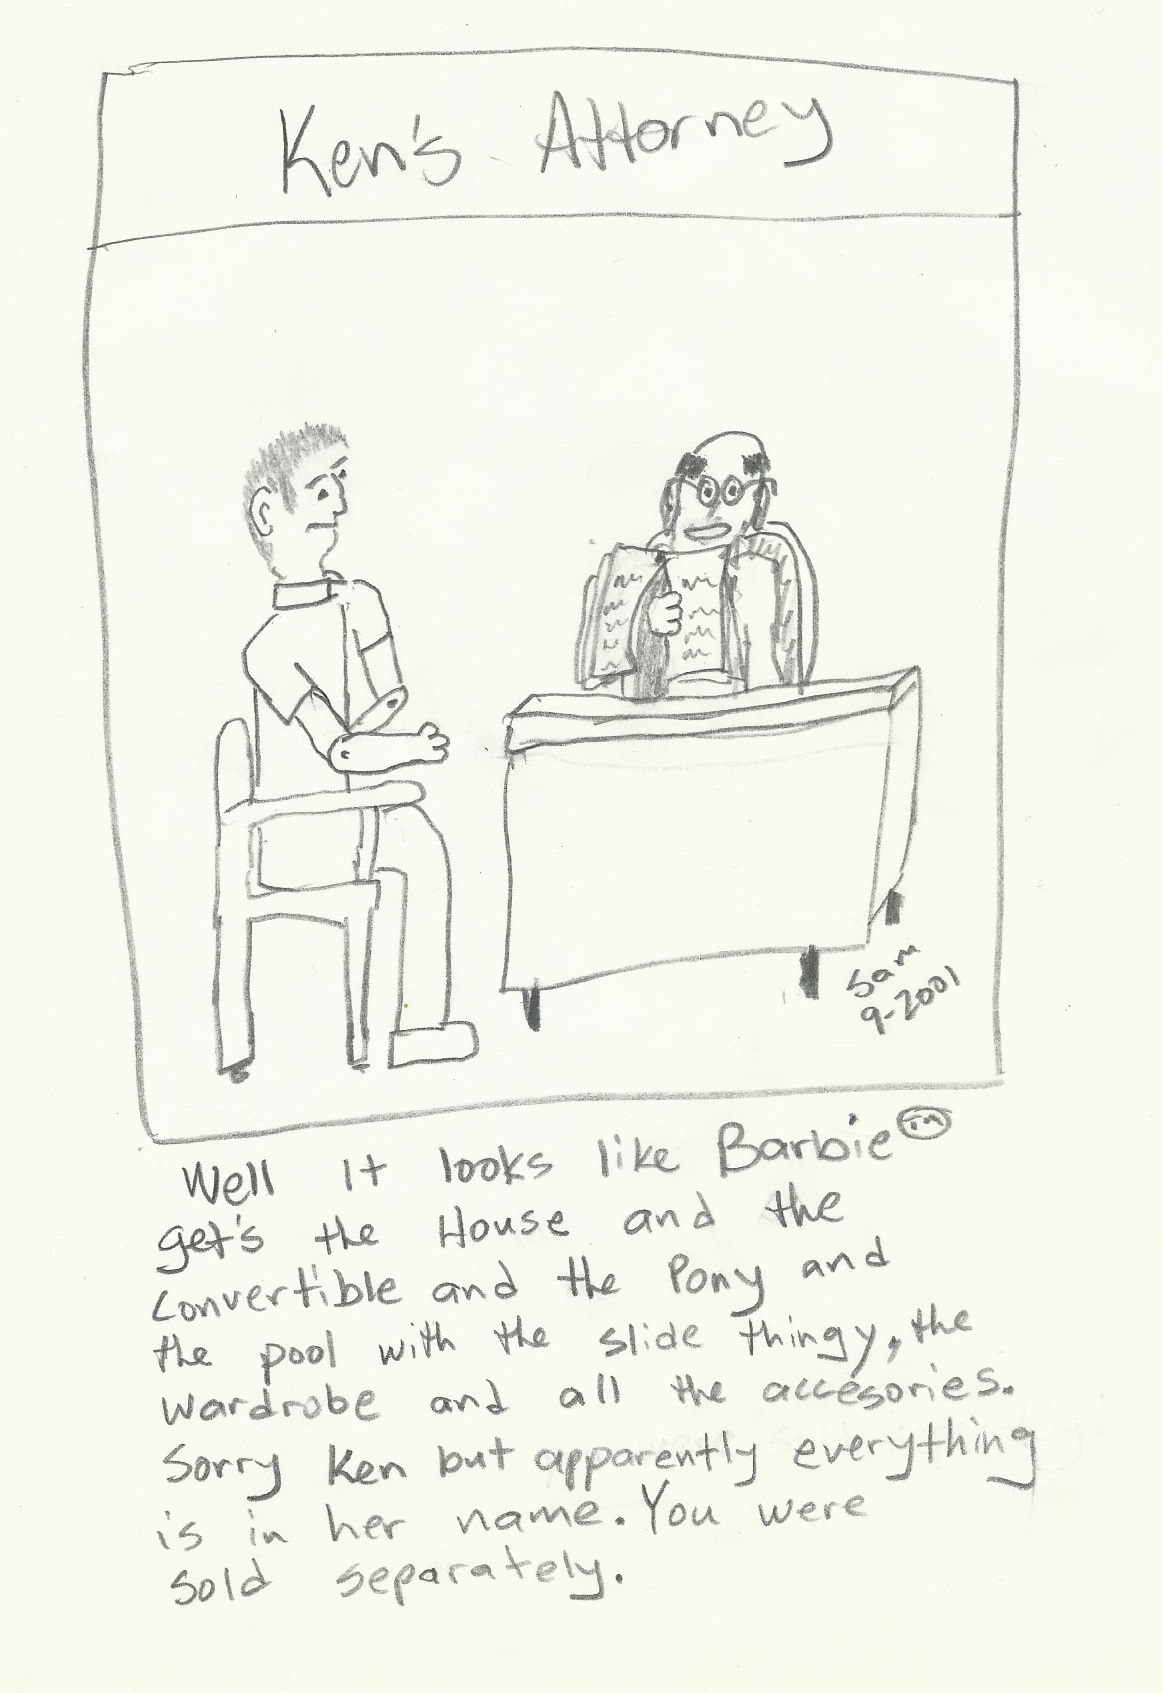 Ken's Attorney
Sam
9-2001
Well It looks like Barbie™
get's the House and the
convertible and the Pony and
the pool with the slide thingy, the
wardrobe and all the accesories.
Sorry Ken but apparently everything
is in her name. You were
sold separately.